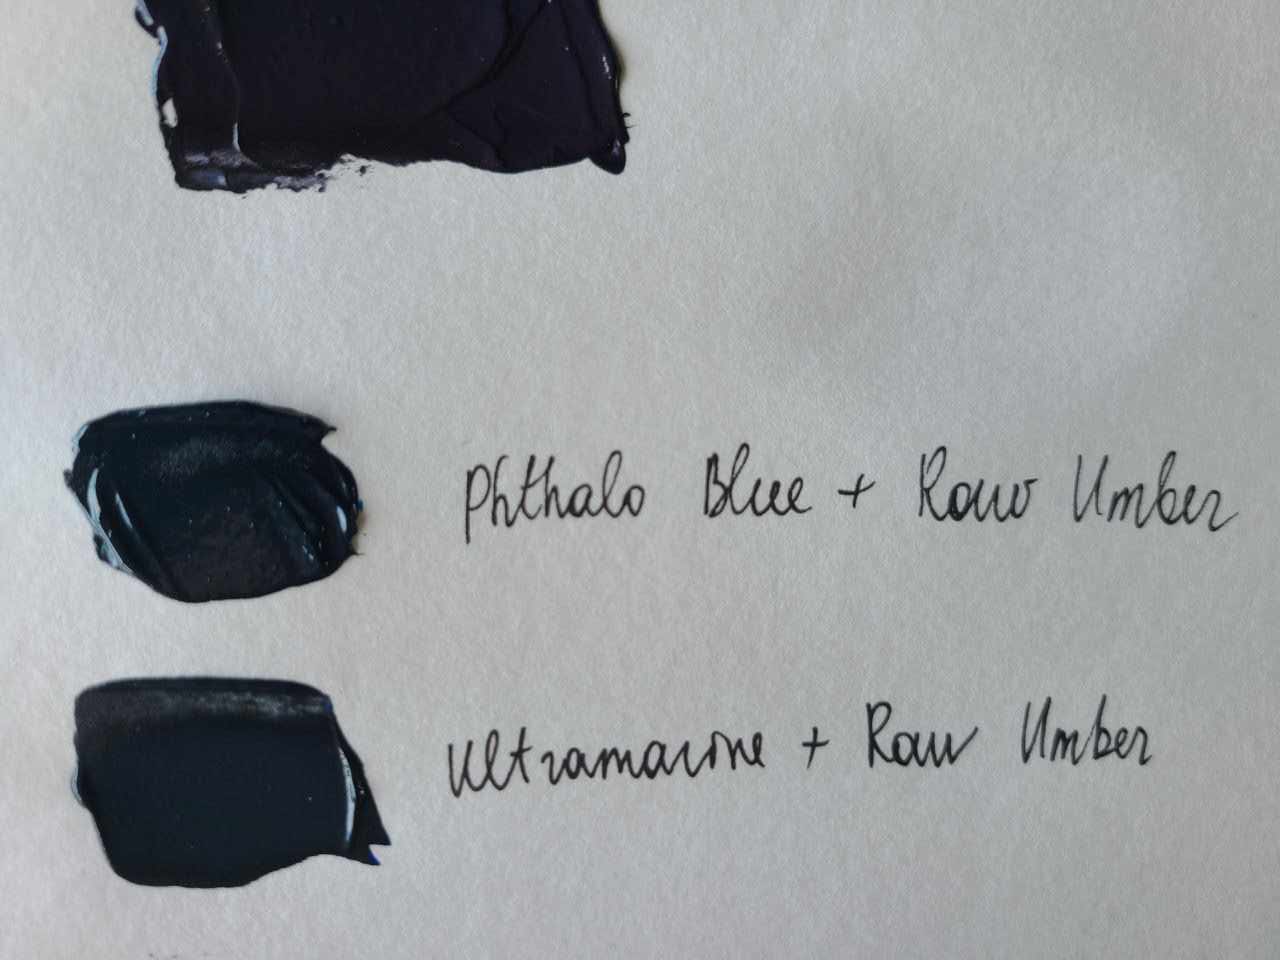 Phthalo Blue + Raw Umber
Ultramarine + Raw Umber